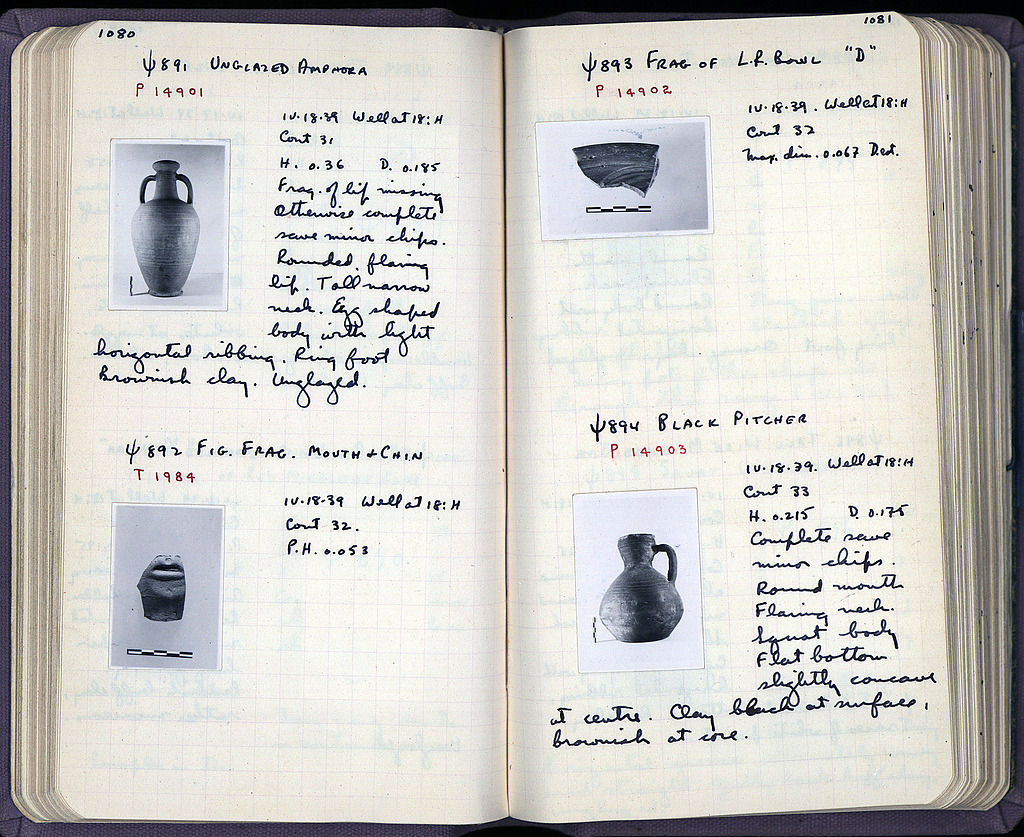 1080
Ψ891 UNGLAZED AMPHORA
P 14901
IV·18·39 Well at 18:H
Cont 31
H. 0.36 D. 0.185
Frag. of lip missing
Otherwise complete
save minor chips.
Rounded, flaring
lip. Tall narrow
neck. Egg shaped
body with light
horizontal ribbing. Ring foot
Brownish clay. Unglazed.
Ψ892 FIG. FRAG. MOUTH & CHIN
T 1984
IV·18·39 Well at 18:H
Cont 32.
P.H. 0.053
1081
Ψ893 FRAG OF L.R. BOWL "D"
P 14902
IV·18·39. Well at 18:H
Cont 32
Max. dim. 0.067 Det.
Ψ894 BLACK PITCHER
P 14903
IV·18·39. Well at 18:H
Cont 33
H. 0.215 D. 0.175
Complete save
minor chips.
Round mouth
Flaring neck.
Squat body
Flat bottom
slightly concave
at centre. Clay black at surface,
brownish at core.